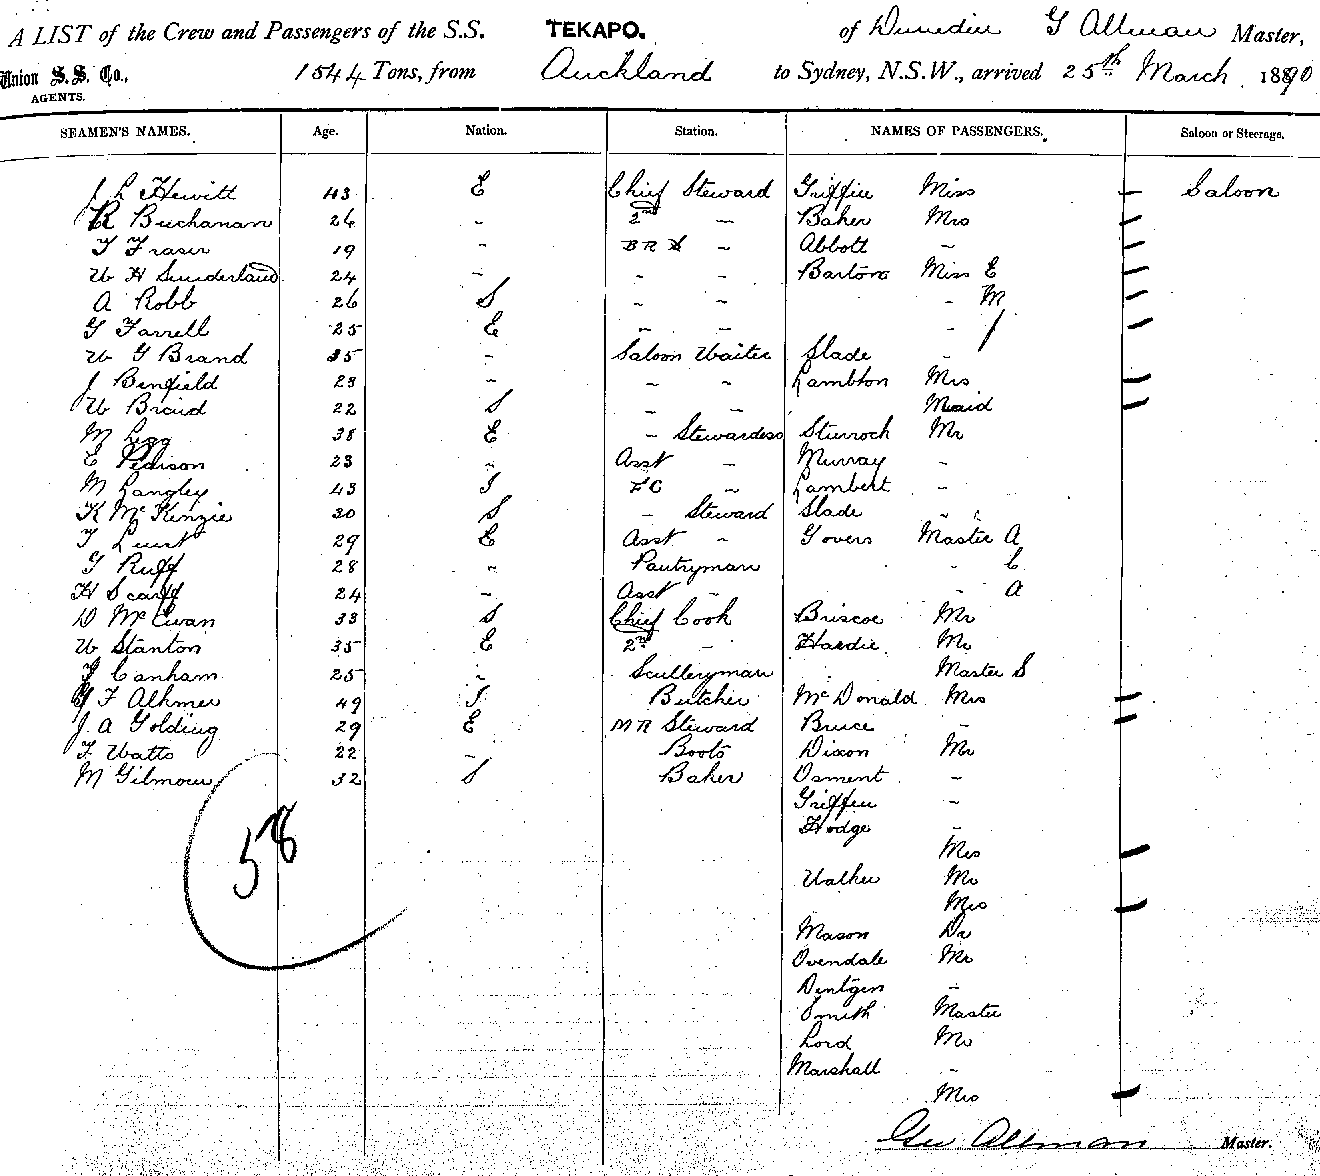 A LIST of the Crew and Passengers of the S.S. TEKAPO. of Dunedin G Allman Master,
Union S.S. Co., AGENTS. 1544 Tons, from Auckland to Sydney, N.S.W., arrived 25th March 1890
SEAMEN'S NAMES. Age. Nation. Station. NAMES OF PASSENGERS. Saloon or Steerage.
J L Hewitt 43 E Chief Steward Griffin Miss — Saloon
R Buchanan 26 " 2nd " Baker Mrs —
T Fraser 19 " B R S " Abbott " —
W H Sunderland 24 " " " Barton Miss E —
A Robb 26 S " " " M —
G Farrell 25 E " " " —
W G Brand 35 " Saloon Waiter Slade "
J Benfield 23 " " " Lambton Mrs —
W Braid 22 S " " Maid —
M Legg 38 E " Stewardess Sturrock Mr
E Pedison 23 " Asst " Murray "
M Langley 43 I F C " Lambert "
K McKenzie 30 S " Steward Slade "
T Lunt 29 E Asst " Govers Master A
G Ruff 28 " Pantryman " C
H Scarff 24 " Asst " " A
D McEwan 33 S Chief Cook Briscoe Mr
W Stanton 35 E 2nd " Hardie Mr
J Canham 25 " Sculleryman Master S
G F Alkmer 49 I Butcher McDonald Mrs —
J A Golding 29 E M R Steward Bruce " —
F Watts 22 " Boots Dixon Mr
M Gilmour 32 S Baker Osment "
Griffin "
Hodge "
58 Mrs —
Walker Mr
Mrs —
Mason Dr
Ovendale Mr
Dentgen "
Smith Master
Lord Mr
Marshall "
Mrs —
Geo Allman Master.